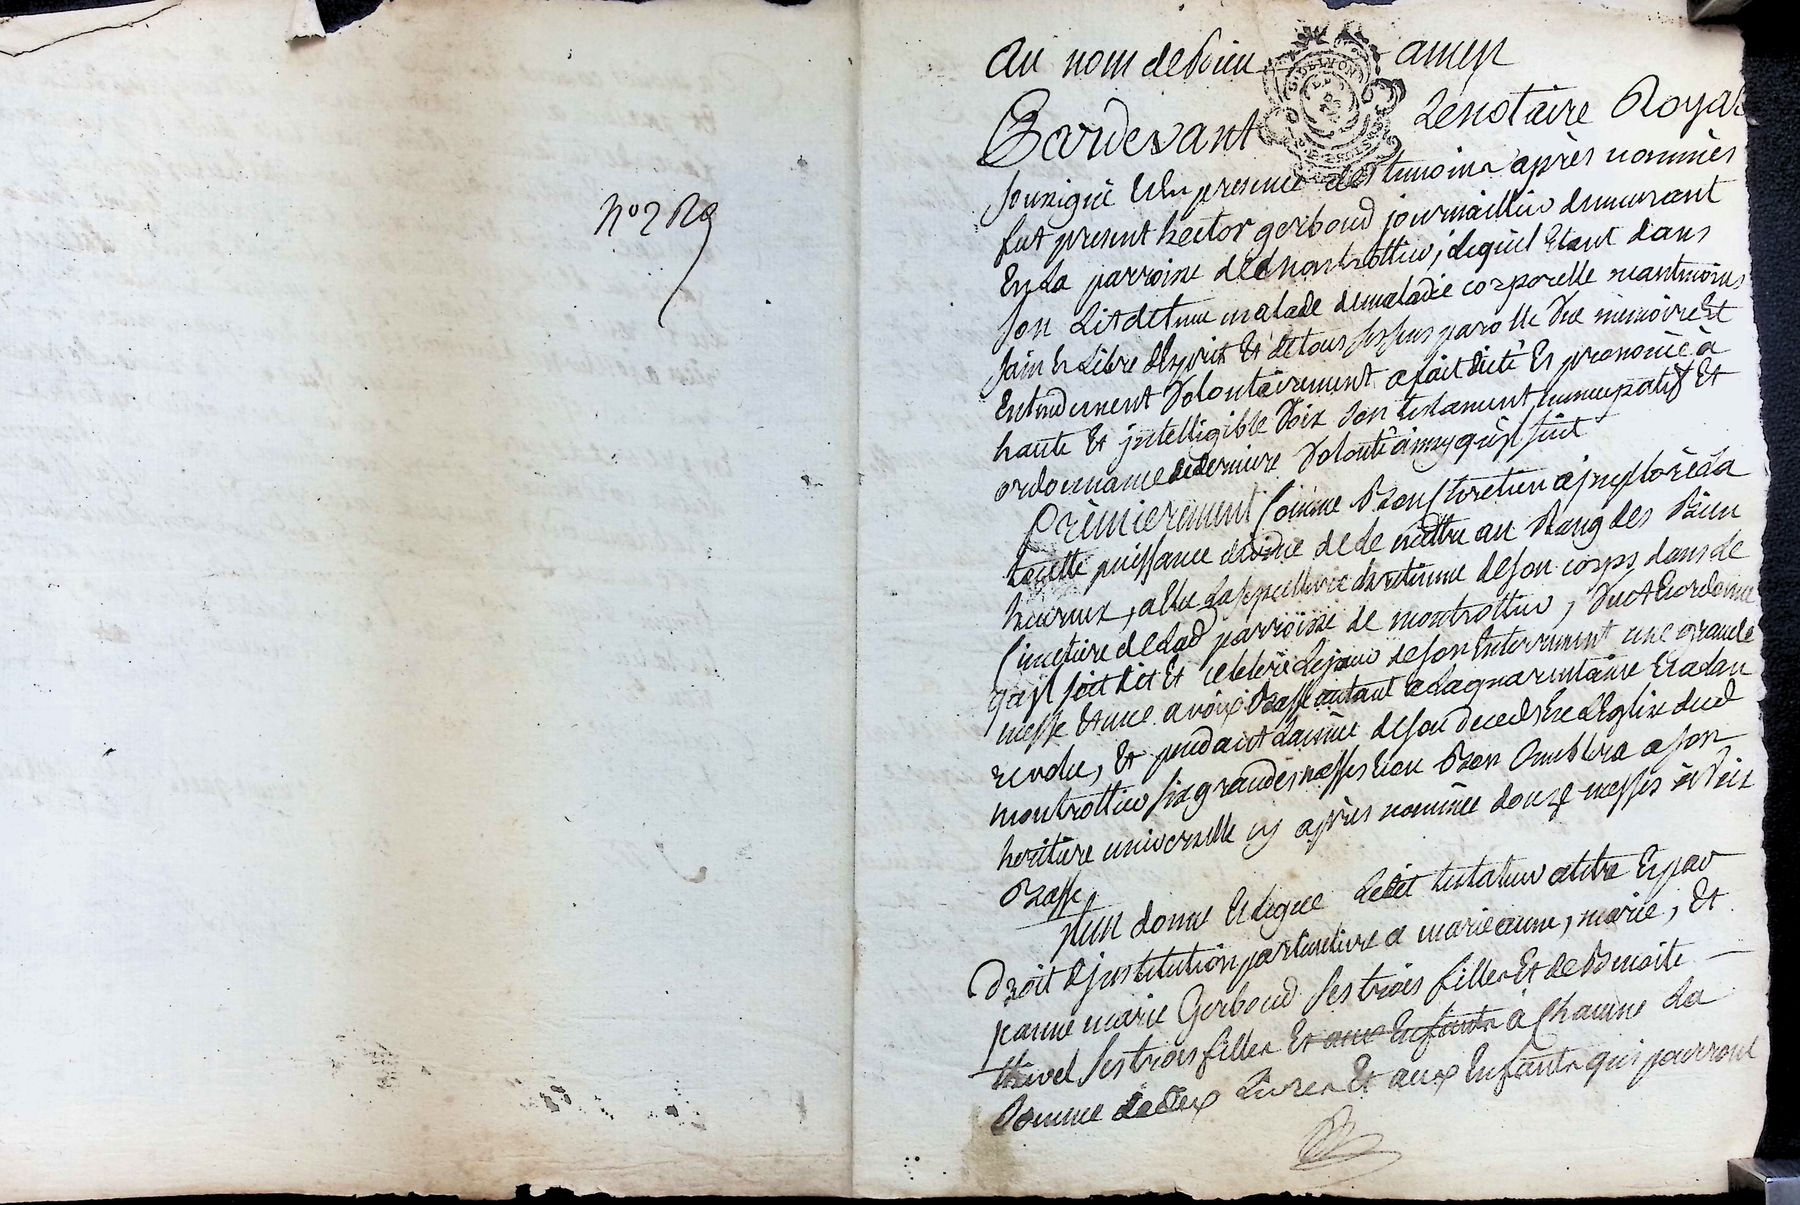 n° 2
au nom de Dieu amen
G. DE LYON
Pardevant Le notaire Royal
soussigné Et En presence des temoins après nommès
fut present hector gerboud journaillier demeurant
En La parroisse de montrottier, lequel Etant dans
son Lit detenu malade de maladie corporelle neantmoins
sain et Libre d'Esprit Et de tous ses sens parolle Vue mémoire Et
Entendement Volontairement a fait dicté Et prononcé à
haute Et jntelligible Voix son testament nuncupatif Et
ordonnance de derniere Volonté ainsy qu'jl suit
Prèmierement Comme Bon Chretien a jmploré La
toutte puissance divine de le mettre au Rang des Bien
heureux, a Elu La sepulture chretienne de son corps dans Le
Cimetiere de Lad parroisse de montrottier, Veut Et ordonne
qu'jl soit dit Et celebré Le jour de son Enterrement une grande
messe Et une a voix Basse autant a La quarantaine Et a L'an
revolu, Et pendant L'année de son deceds En L'Eglise dud
montrottier six grandes messes Et ou Bon Semblera a son
heritiere universelle cy après nommée douze messes à Voix
Basse
jtem donne Et Legue Ledit testateur a titre Et par
Droit d'jnstitution particuliere a marie anne, marie, Et
jeanne marie Gerboud ses trois filles Et de Benoite
thivel ses trois filles Et aux Enfants à Chacune La
Somme de dix Livres Et aux Enfants qui pourront